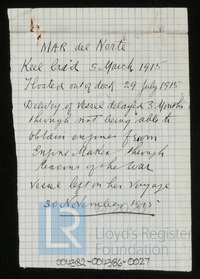 MAR del Norte
Keel laid 5 March 1915
Floated out of dock 29 July 1915
Delivery of vessel delayed 3 Months
through not being able to
obtain engines from
Engine Maker through
reasons of the War
Vessel left on her Voyage
30 November 1915
LR
Lloyd's Register
Foundation
004382-004386-0027